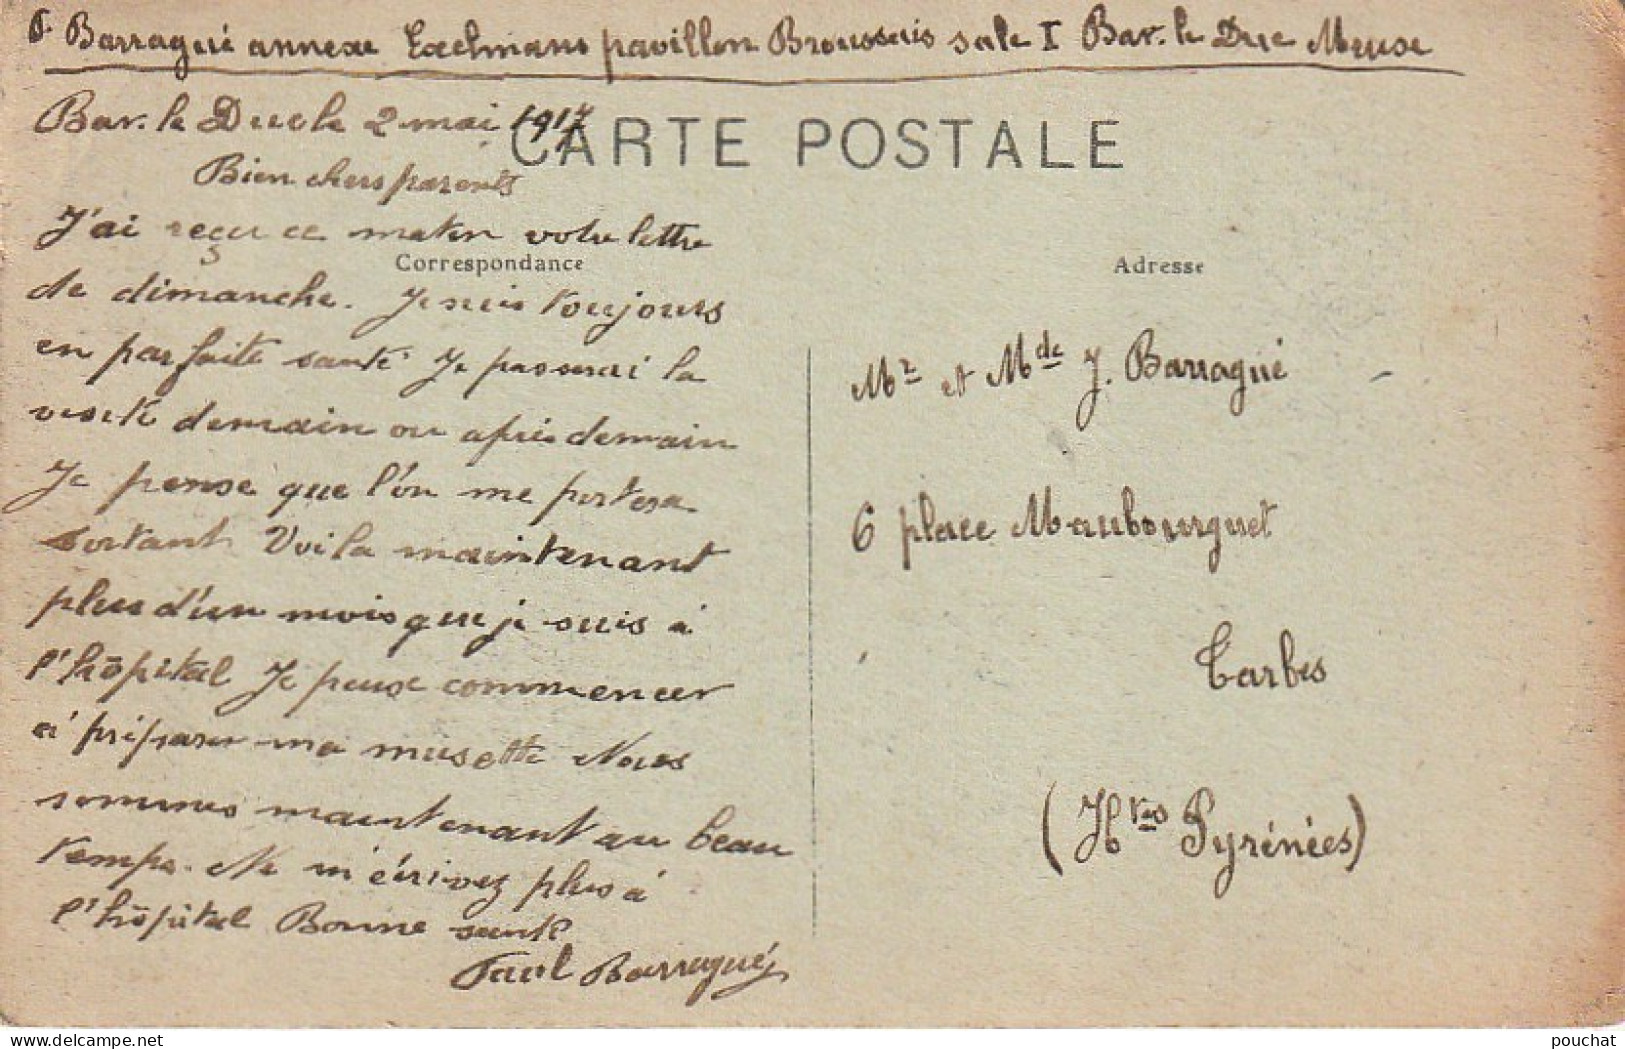 P. Barragué annexe Exelmans pavillon Broussais sale I Bar. le Duc Meuse
Bar. le Duc le 2 mai 1917
CARTE POSTALE
Bien chers parents
J'ai reçu ce matin votre lettre
Correspondance
de dimanche. Je suis toujours
en parfaite santé Je passerai la
visite demain ou après demain
Je pense que l'on me portera
sortant Voila maintenant
plus d'un mois que je suis à
l'hôpital Je peux commencer
à préparer ma musette Nous
sommes maintenant au beau
temps. Ne m'écrivez plus à
l'hôpital Bonne santé
Paul Barragué
Adresse
Mr et Mde J. Barragué
6 place Maubourguet
Tarbes
(Htes Pyrénées)
delcampe.net
pouchat